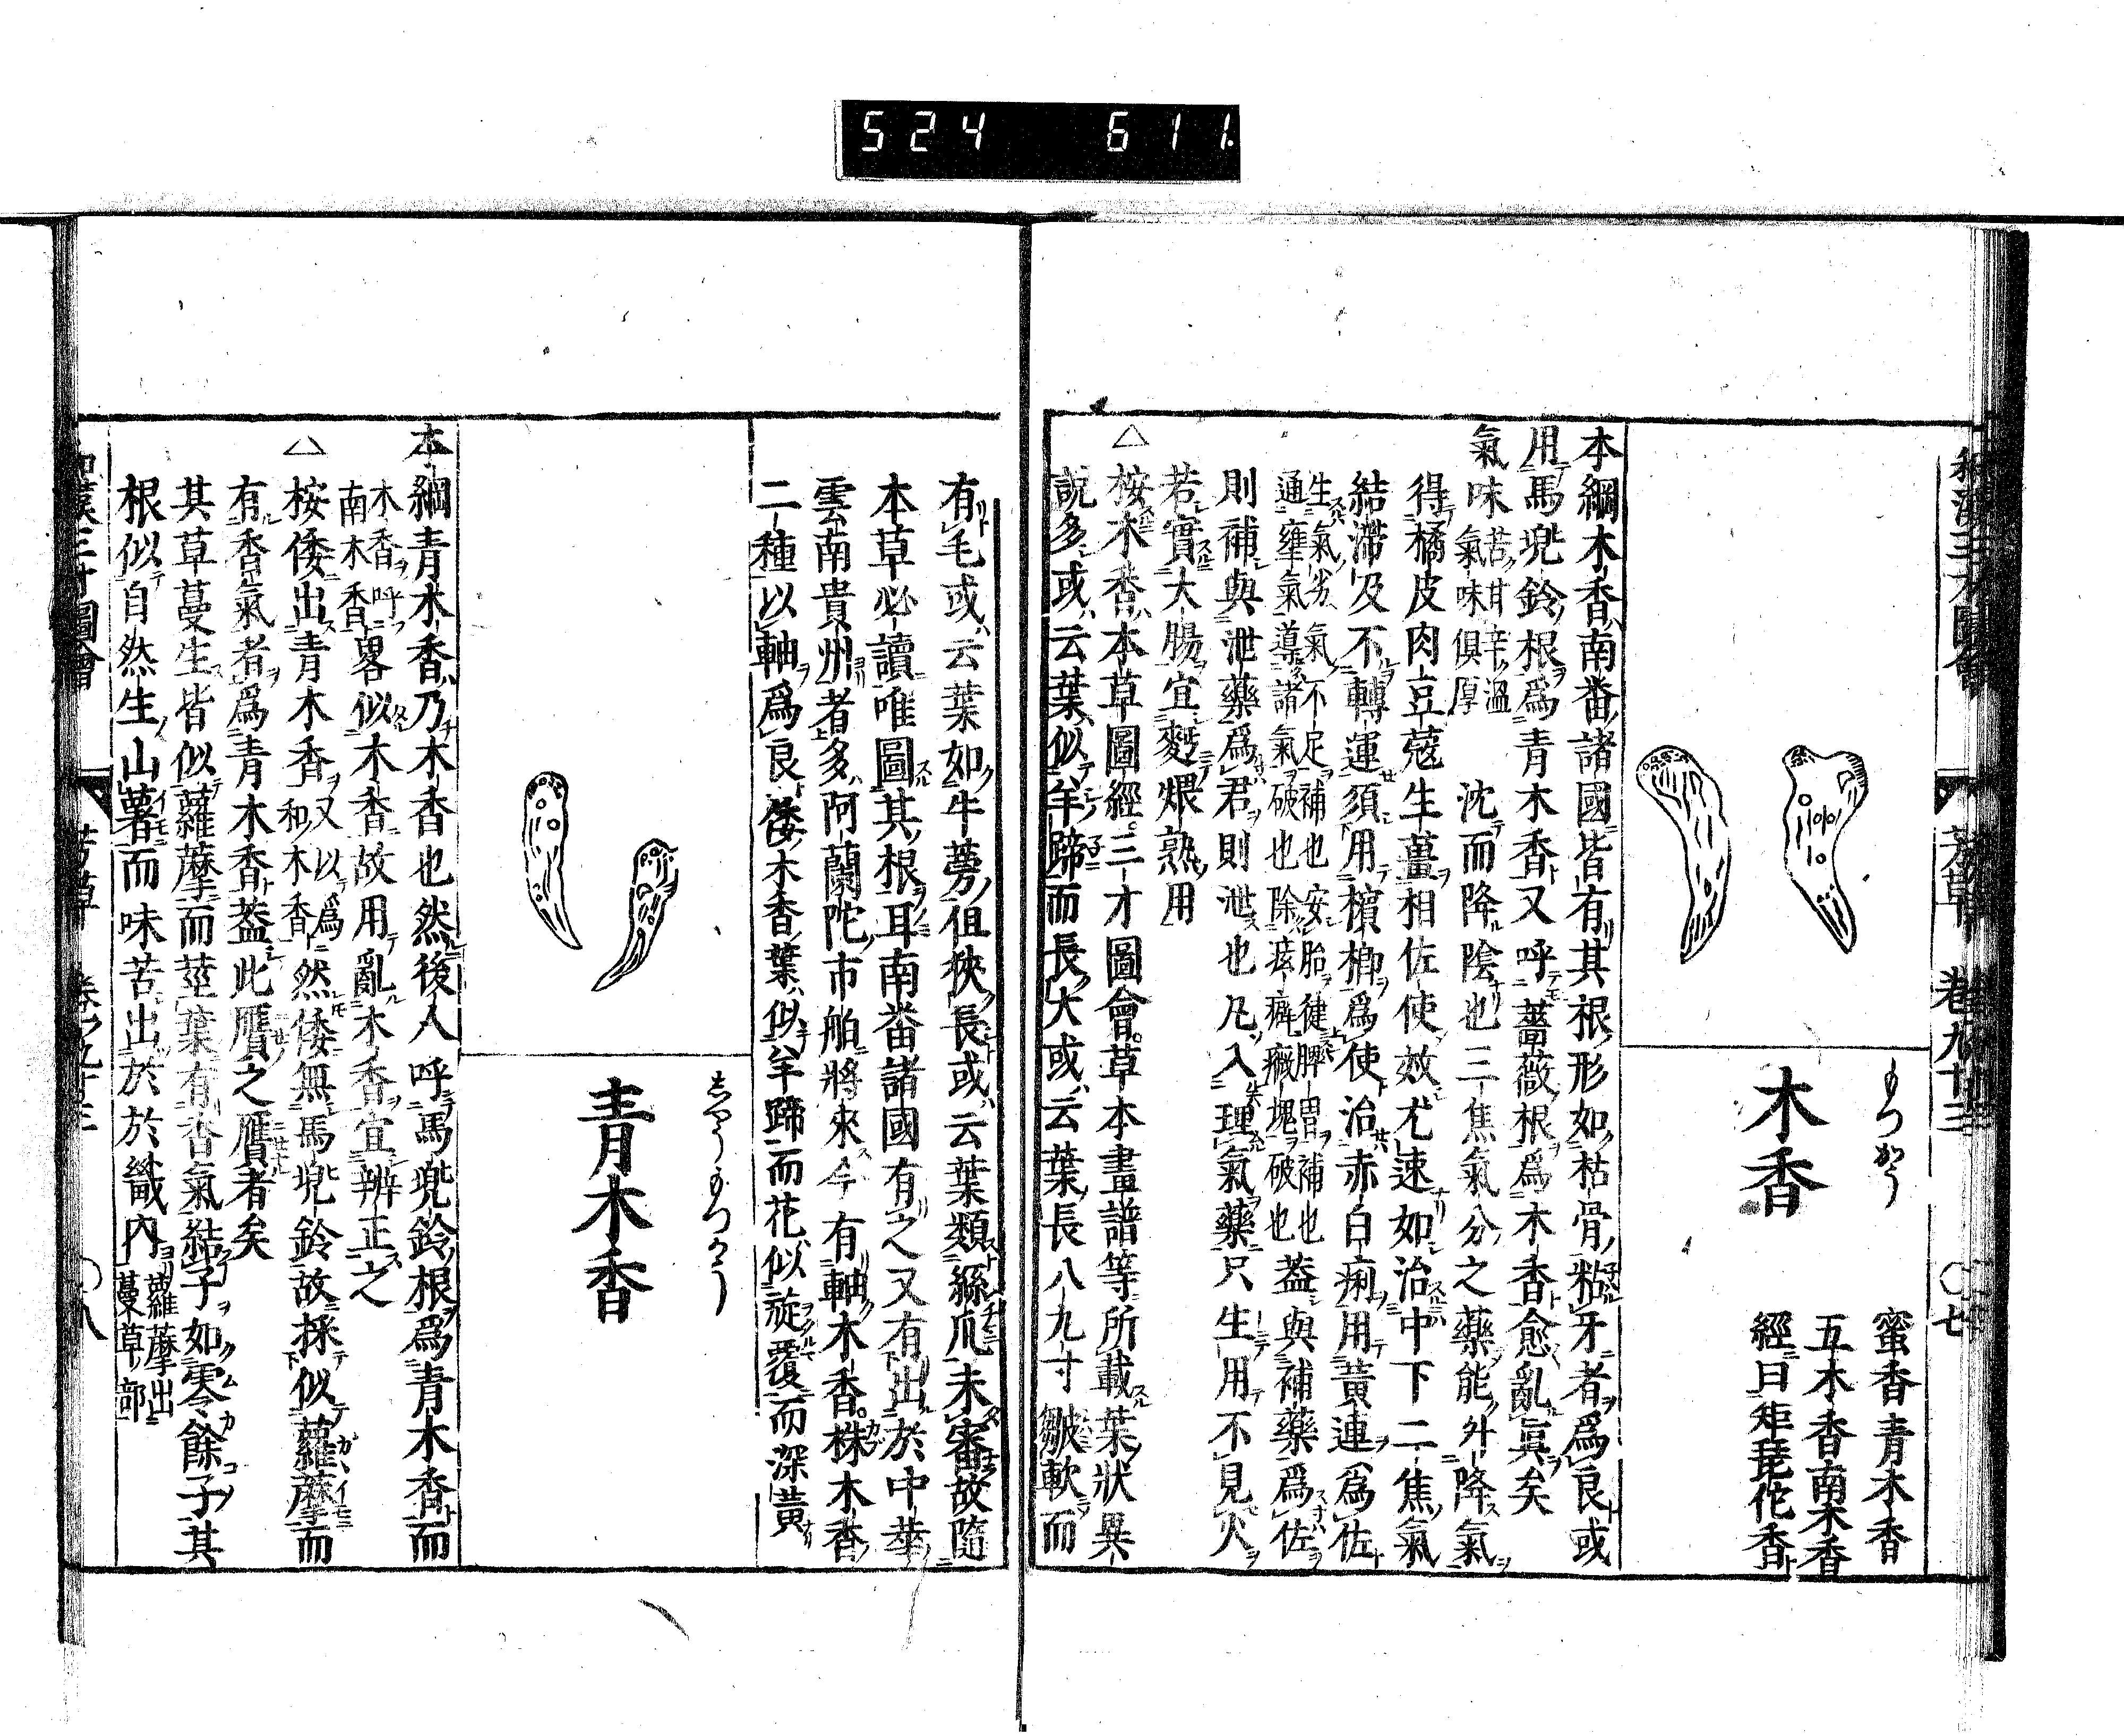 524 611.
和漢三才圖會 芳草 卷九十三 〇七
もつかう
木香
蜜香 青木香
五木香 南木香
經曰矩琵佗香
本綱木香南番諸國皆有其根形如枯骨粘牙者爲良或
用馬兜鈴根爲青木香又呼薔薇根爲木香愈亂眞矣
氣味 苦甘辛溫
氣味俱厚
沈而降陰也三焦氣分之藥能外降氣
得橘皮肉豆蔲生薑相佐使效尤速如治中下二焦氣
結滯及不轉運須用檳榔爲使治赤白痢用黃連爲佐
生氣劣氣不足補也安胎健脾胃補也
通壅氣導諸氣破也除痃癖癥塊破也
蓋與補藥爲佐
則補與泄藥爲君則泄也凡入理氣藥只生用不見火
若實大腸宜麪煨熟用
△按木香本草圖經三才圖會草本畫譜等所載葉狀異
說多或云葉似羊蹄而長大或云葉長八九寸皺軟而
有毛或云葉如牛蒡但狹長或云葉類絲瓜未審故隨
本草必讀唯圖其根耳南番諸國有之又有出於中華
雲南貴州者多阿蘭陀市舶將來今有軸木香株木香
二種以軸爲良倭木香葉似羊蹄而花似旋覆而深黃
志やうもつかう
青木香
本綱青木香乃木香也然後人呼馬兜鈴根爲青木香而
木香呼
南木香
畧似木香故用亂木香宜辨正之
△按倭出青木香
又以爲
和木香
然倭無馬兜鈴故採似蘿藦而
有香氣者爲青木香蓋此贋之贋者矣
其草蔓生皆似蘿藦而莖葉有香氣結子如零餘子其
根似自然生山薯而味苦出於於畿內
蘿藦出
蔓草部
和漢三才圖會 芳草 卷ノ九十三 〇八